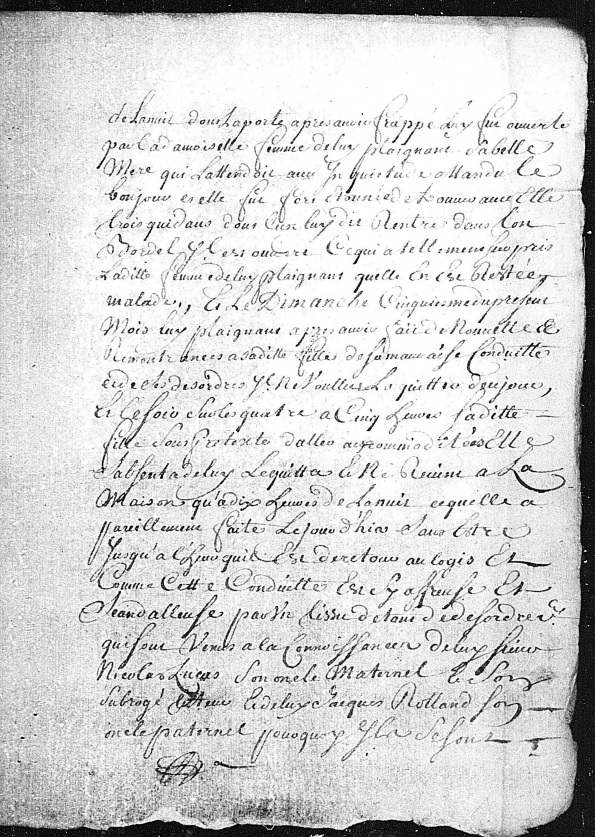 de la nuit dont la porte apres avoir frappé luy fut ouverte
par la damoiselle femme de luy plaignant sa belle
Mere qui l'attendoit avec Inquietude attandu le
et elle fut fort etonnée de
trois quidans dont l'un luy dit Rentre dans ton
Bordel Il est ouvert Ce qui a tellement surpris
laditte femme de luy plaignant quelle En est Restée
malade, Et Le Dimanche Cinquiesme du present
Mois luy plaignant apres avoir fait de Nouvelle
Remontrances a saditte fille de sa mauvaise Conduitte
et de ses desordres Il Ne voullut la quitter d'un jour,
Et le soir sur les quatre a Cinq heures saditte
fille sous pretexte d'aller a ses commoditées Elle
s'absenta de luy Le quitta Et Ne Revint a La
Maison qu'a dix heures de La nuit ce quelle a
pareillement faite Le jour d'hier sans Estre
Jusqu'a l'heure quil Est de retour au logis Et
Comme Cette Conduitte Est Sy affreuse Et
Scandalleuse par Un tissu de tant de desordres
qui sont Venus a la Connoissance de luy sieur
Nicolas Lucas son oncle Maternel Et son
subrogé tutteur Et de luy Jacques Rolland son
oncle paternel pourquoy Ils se sont